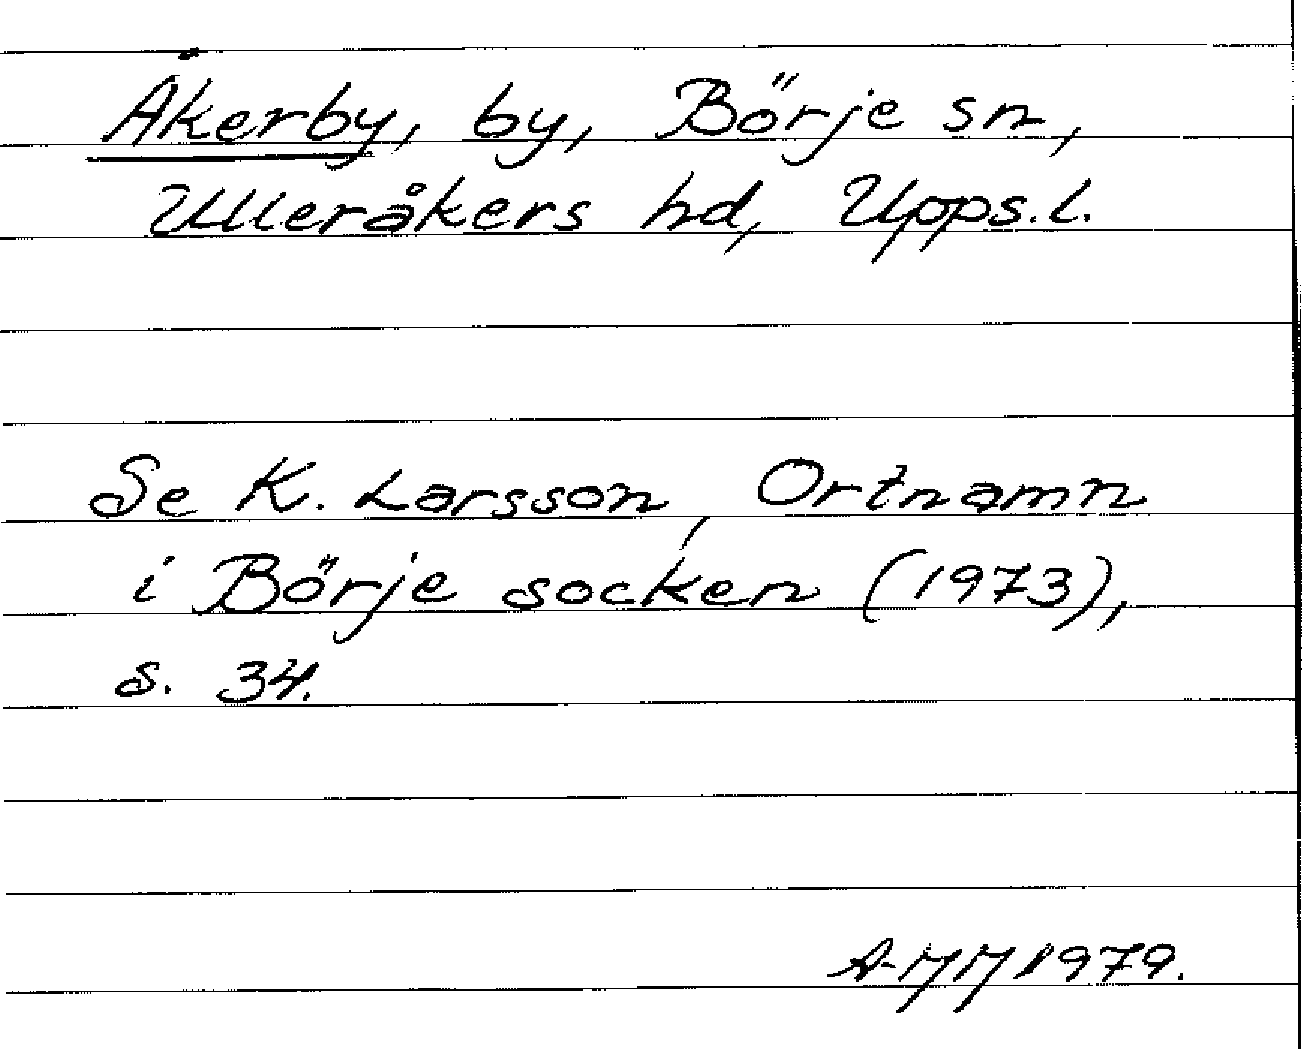 Åkerby, by, Börje sn,
Ulleråkers hd, Upps.l.
Se K. Larsson, Ortnamn
i Börje socken (1973),
s. 34.
1979.